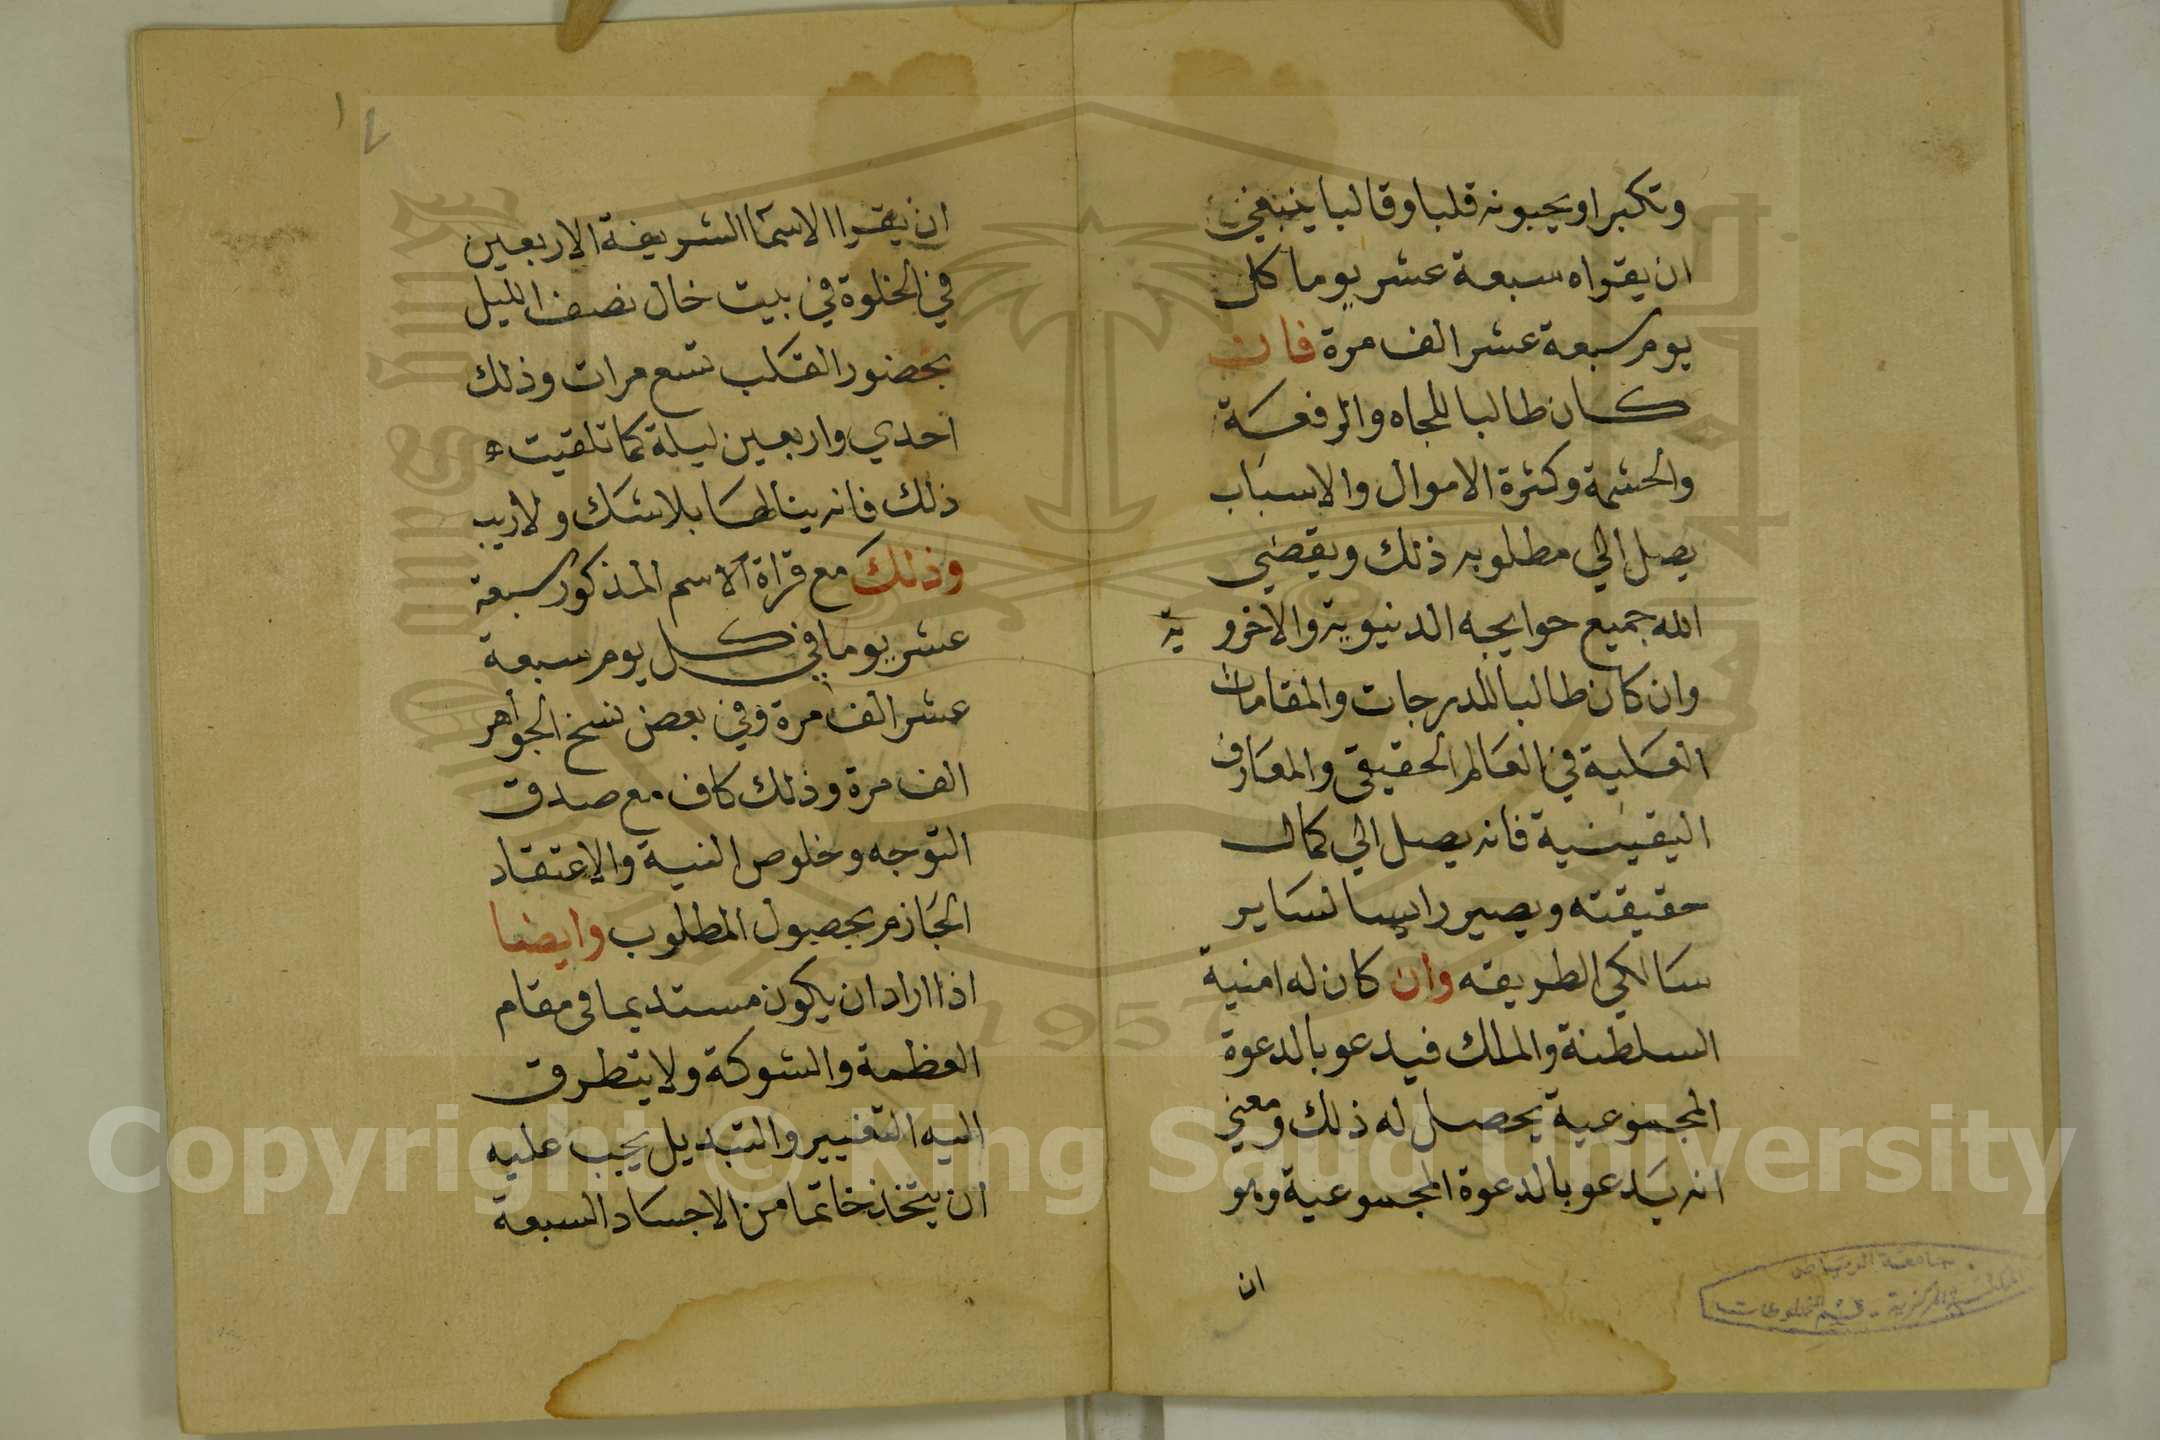 وتكبرا ويحبونه قلبا وقالبا ينبغي
ان يقراه سبعة عشر يوما كل
يوم سبعة عشر الف مرة فان
كان طالبا للجاه والرفعة
والحشمة وكثرة الاموال والاسباب
يصل الي مطلوبه ذلك ويقضي
الله جميع حوايجه الدنيوية والاخروية
وان كان طالبا للدرجات والمقامات
العلية في العالم الحقيقي والمعارف
اليقينية فانه يصل الي كمال
حقيقته ويصير راييسا لساير
سالكي الطريقه وان كان له امنية
السلطنة والملك فيدعو بالدعوة
المجموعية يحصل له ذلك ومعني
انه يدعو بالدعوة المجموعية وهو
ان
ان يقرا الاسما الشريفة الاربعين
في الخلوة في بيت خال نصف الليل
بحضور القلب تسع مرات وذلك
احدي واربعين ليلة كما تلقيت
ذلك فانه ينالها بلاشك ولاريب
وذلك مع قراة الاسم المذكور سبعة
عشر يوما في كل يوم سبعة
عشر الف مرة وفي بعض نسخ الجواهر
الف مرة وذلك كاف مع صدق
التوجه وخلوص النية والاعتقاد
الجازم بحصول المطلوب وايضا
اذا اراد ان يكون مستديما في مقام
العظمة والشوكة ولا يتطرق
اليه التغيير والتبديل يجب عليه
ان يتخذ خاتما من الاجساد السبعة
جامعة الرياض
المكتبة المركزية - قسم المخطوطات
1957
Copyright © King Saud University